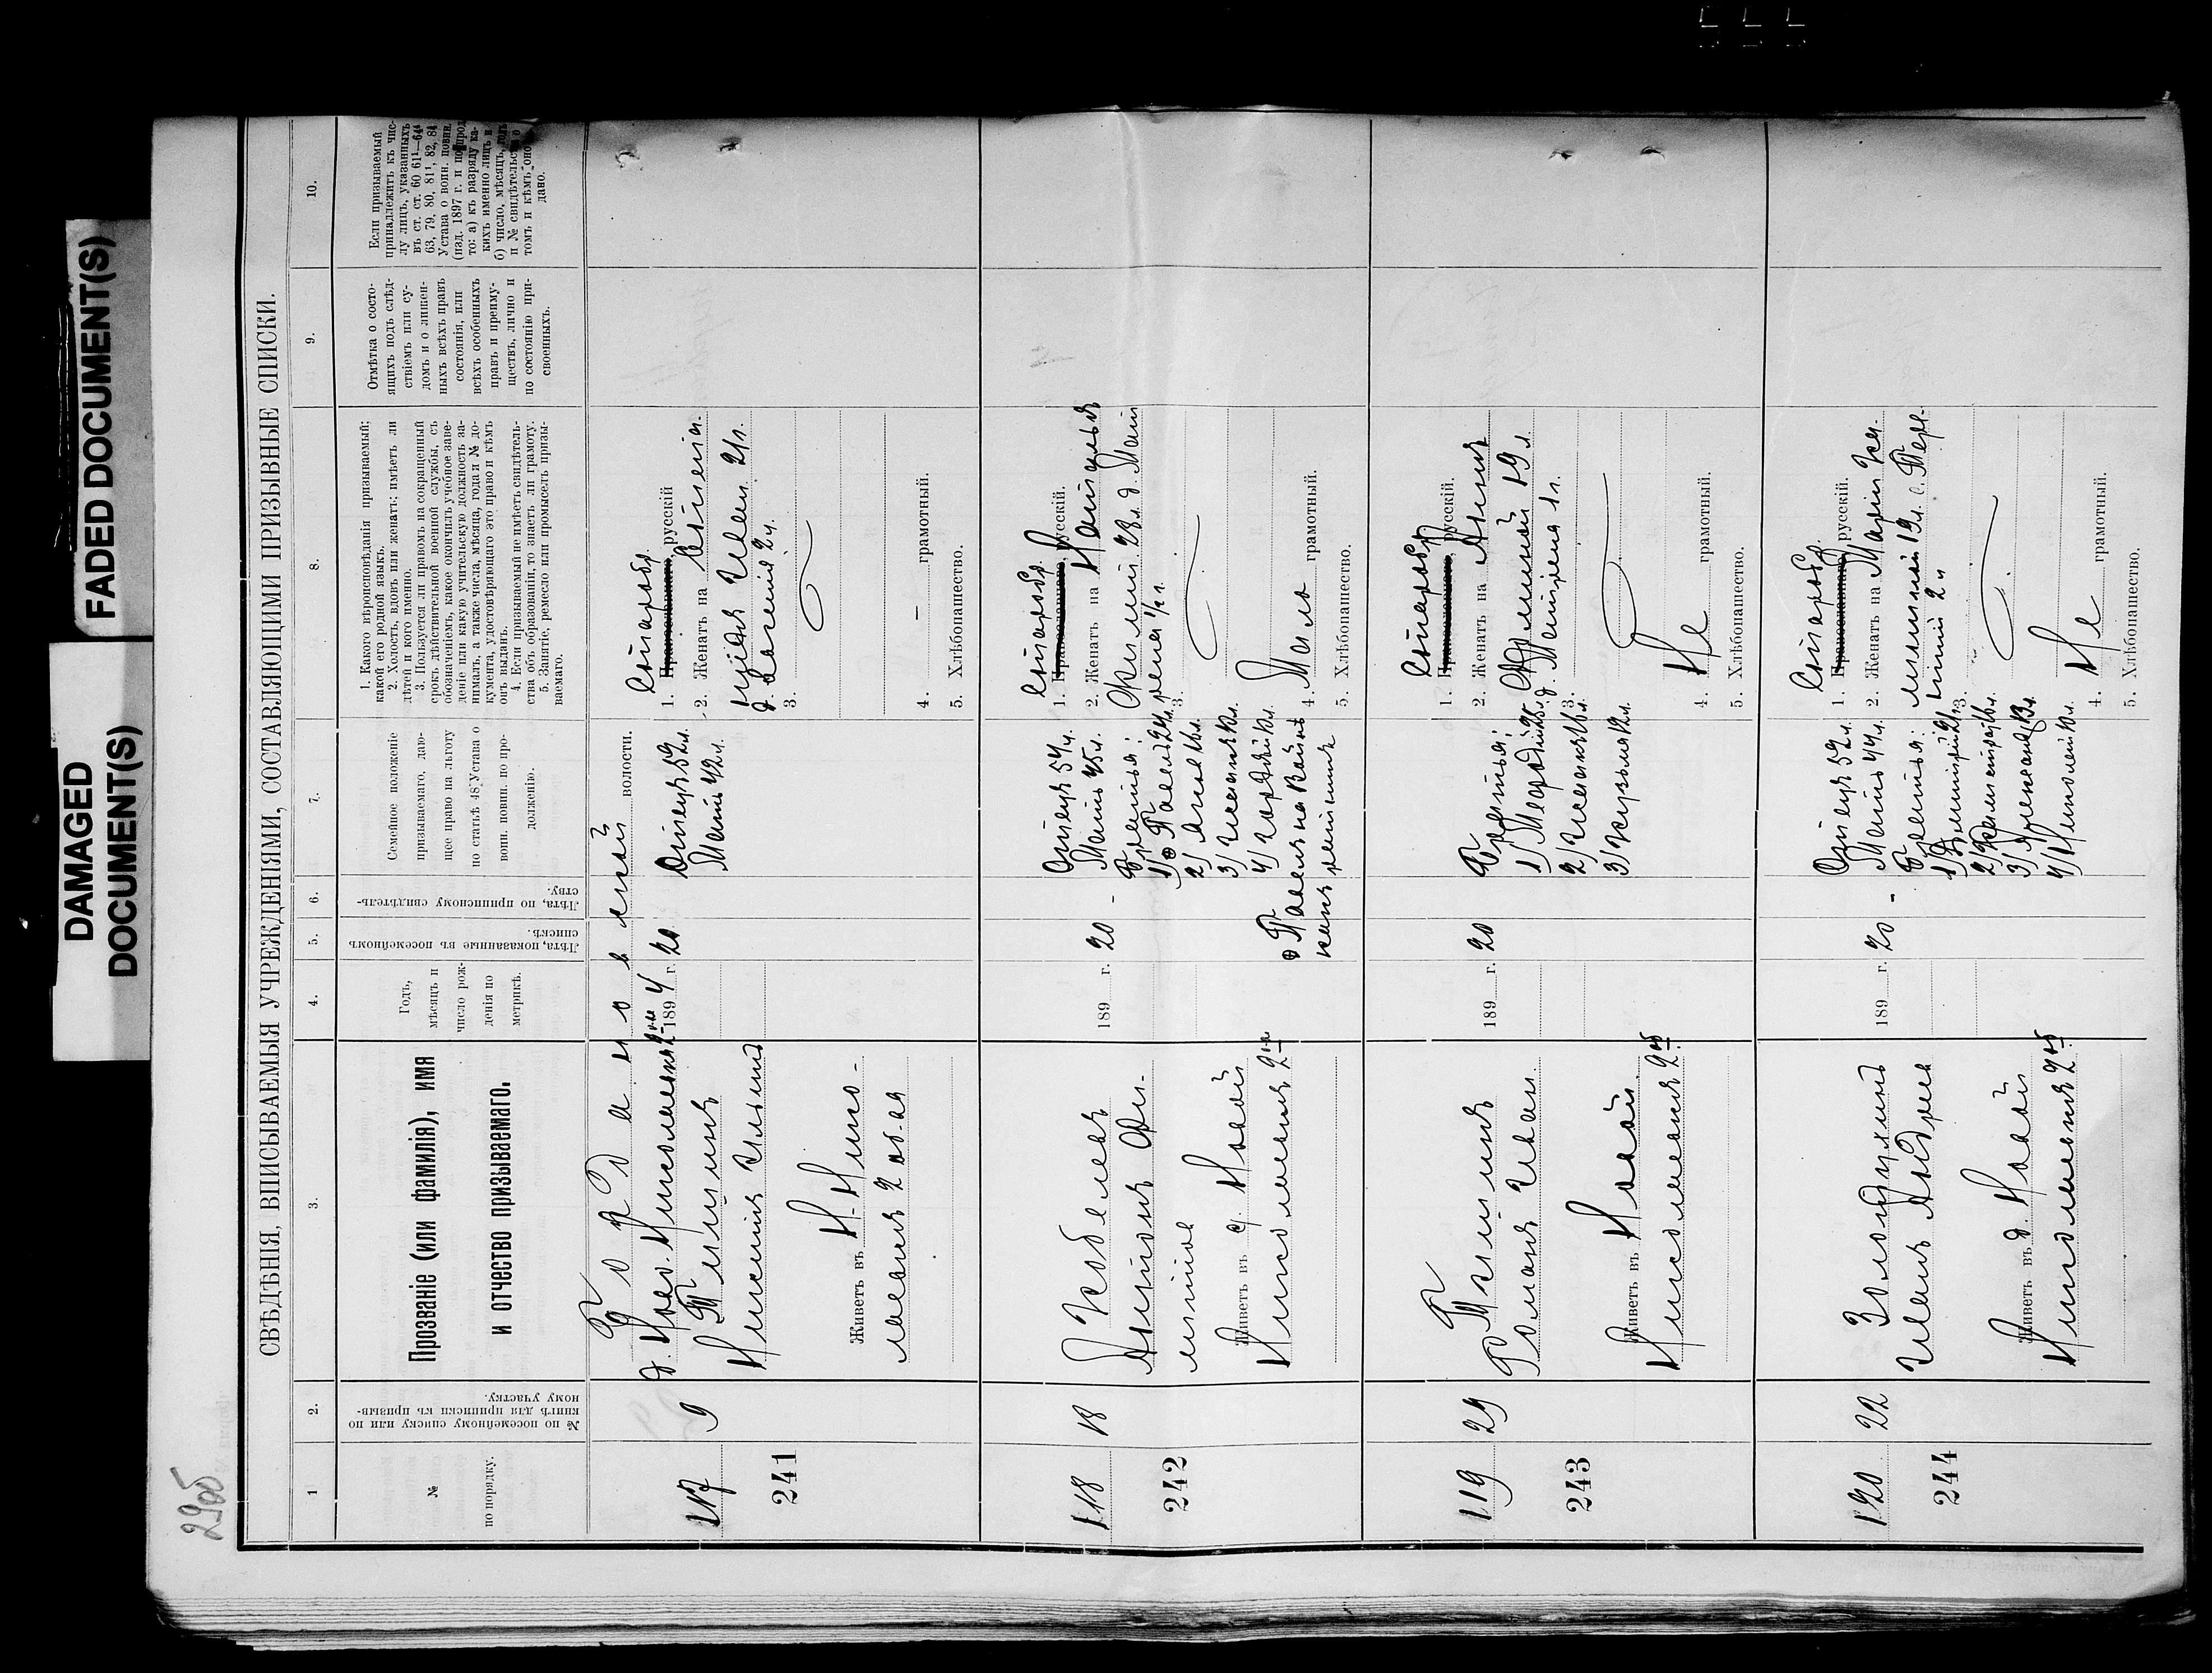 DAMAGED
DOCUMENT(S)
FADED DOCUMENT(S)
29об
СВѢДѢНІЯ, ВПИСЫВАЕМЫЯ УЧРЕЖДЕНІЯМИ, СОСТАВЛЯЮЩИМИ ПРИЗЫВНЫЕ СПИСКИ.
1
2.
3.
4.
5.
6.
7.
8.
9.
10.
№
по порядку.
№ по посемейному списку или по
книгѣ для приписки къ призыв-
ному участку.
Прозваніе (или фамилія), имя
и отчество призываемаго.
Годъ,
мѣсяцъ и
число рож-
денія по
метрикѣ.
Лѣта, показанные въ посемейномъ
спискѣ.
Лѣта, по приписному свидѣтель-
ству.
Семейное положеніе
призываемаго, даю-
щее право на льготу
по статьѣ 48 Устава о
воин. повин. по про-
долженію.
1. Какого вѣроисповѣданія призываемый;
какой его родной языкъ.
2. Холостъ, вдовъ или женатъ; имѣетъ ли
дѣтей и кого именно.
3. Пользуется ли правомъ на сокращенный
срокъ дѣйствительной военной службы, съ
обозначеніемъ, какое окончилъ учебное заве-
деніе или какую учительскую должность за-
нималъ, а также числа, мѣсяца, года и № до-
кумента, удостовѣряющаго это право и кѣмъ
онъ выданъ.
4. Если призываемый не имѣетъ свидѣтель-
ства объ образованіи, то знаетъ ли грамоту.
5. Занятіе, ремесло или промыселъ призы-
ваемаго.
Отмѣтка о состо-
ящихъ подъ слѣд-
ствіемъ или су-
домъ и о лишен-
ныхъ всѣхъ правъ
состоянія, или
всѣхъ особенныхъ
правъ и преиму-
ществъ, лично и
по состоянію при-
своенныхъ.
Если призываемый
принадлежитъ къ чис-
лу лицъ, указанныхъ
въ ст. ст. 60 61¹—64⁴
63, 79, 80, 81¹, 82, 84
Устава о воин. повин.
(изд. 1897 г. и по прод.
то: а) къ разряду ка-
кихъ именно лицъ и
б) число, мѣсяцъ, годъ
и № свидѣтельства о
томъ и кѣмъ оно
дано.
волости.
д. Ново. Николаевка 2-ая
117
241
9
Никита Ильинъ
Живетъ въ Н-Нико-
лаевка 2 об-ая
1894 г.
20
Отецъ 52 л.
Мать 42 л.
Старобр.
1. Православнаго, русскій
2. Женатъ на
Иван. 21 л.
д. Василій 2 л.
3.
4. — грамотный.
5. Хлѣбопашество.
118
242
18
Антонъ Фи-
липповъ
Живетъ въ д. Новой
Николаевка 2-ая
189 г.
20 -
Отецъ 54 л.
Мать 45 л.
Братья:
1) Павелъ 24 л.
2) Яковъ 16 л.
3) Иванъ 12 л.
4) Гордѣй 10 л.
Павелъ на войнѣ
Старобр.
1. Православнаго, русскій.
2. Женатъ на Наталья
Филип. 23 л. д. Мат
рена 1/2 г.
3.
4. Мало грамотный.
5. Хлѣбопашество.
119
243
29
Романъ Иван.
Живетъ въ Новой
Николаевка 2 об
189 г.
20
Братья:
2) Иванъ 16 л.
3) Кузьма 12 л.
Старобр.
1. Православнаго, русскій.
2. Женатъ на Анна
19 л.
д. Матрена 1 г.
3.
4. Не грамотный.
5. Хлѣбопашество.
120
244
22
Золотухинъ
Иванъ Андреев
Живетъ въ д. Новой
Николаевка 2 об
189 г.
20 -
Отецъ 52 л.
Мать 44 л.
Братья:
1) Дмитрій 21
4) Николай 10 л.
Старобр.
1. Православнаго, русскій.
2. Женатъ на Марія
19 л.
3.
4. Не грамотный.
5. Хлѣбопашество.